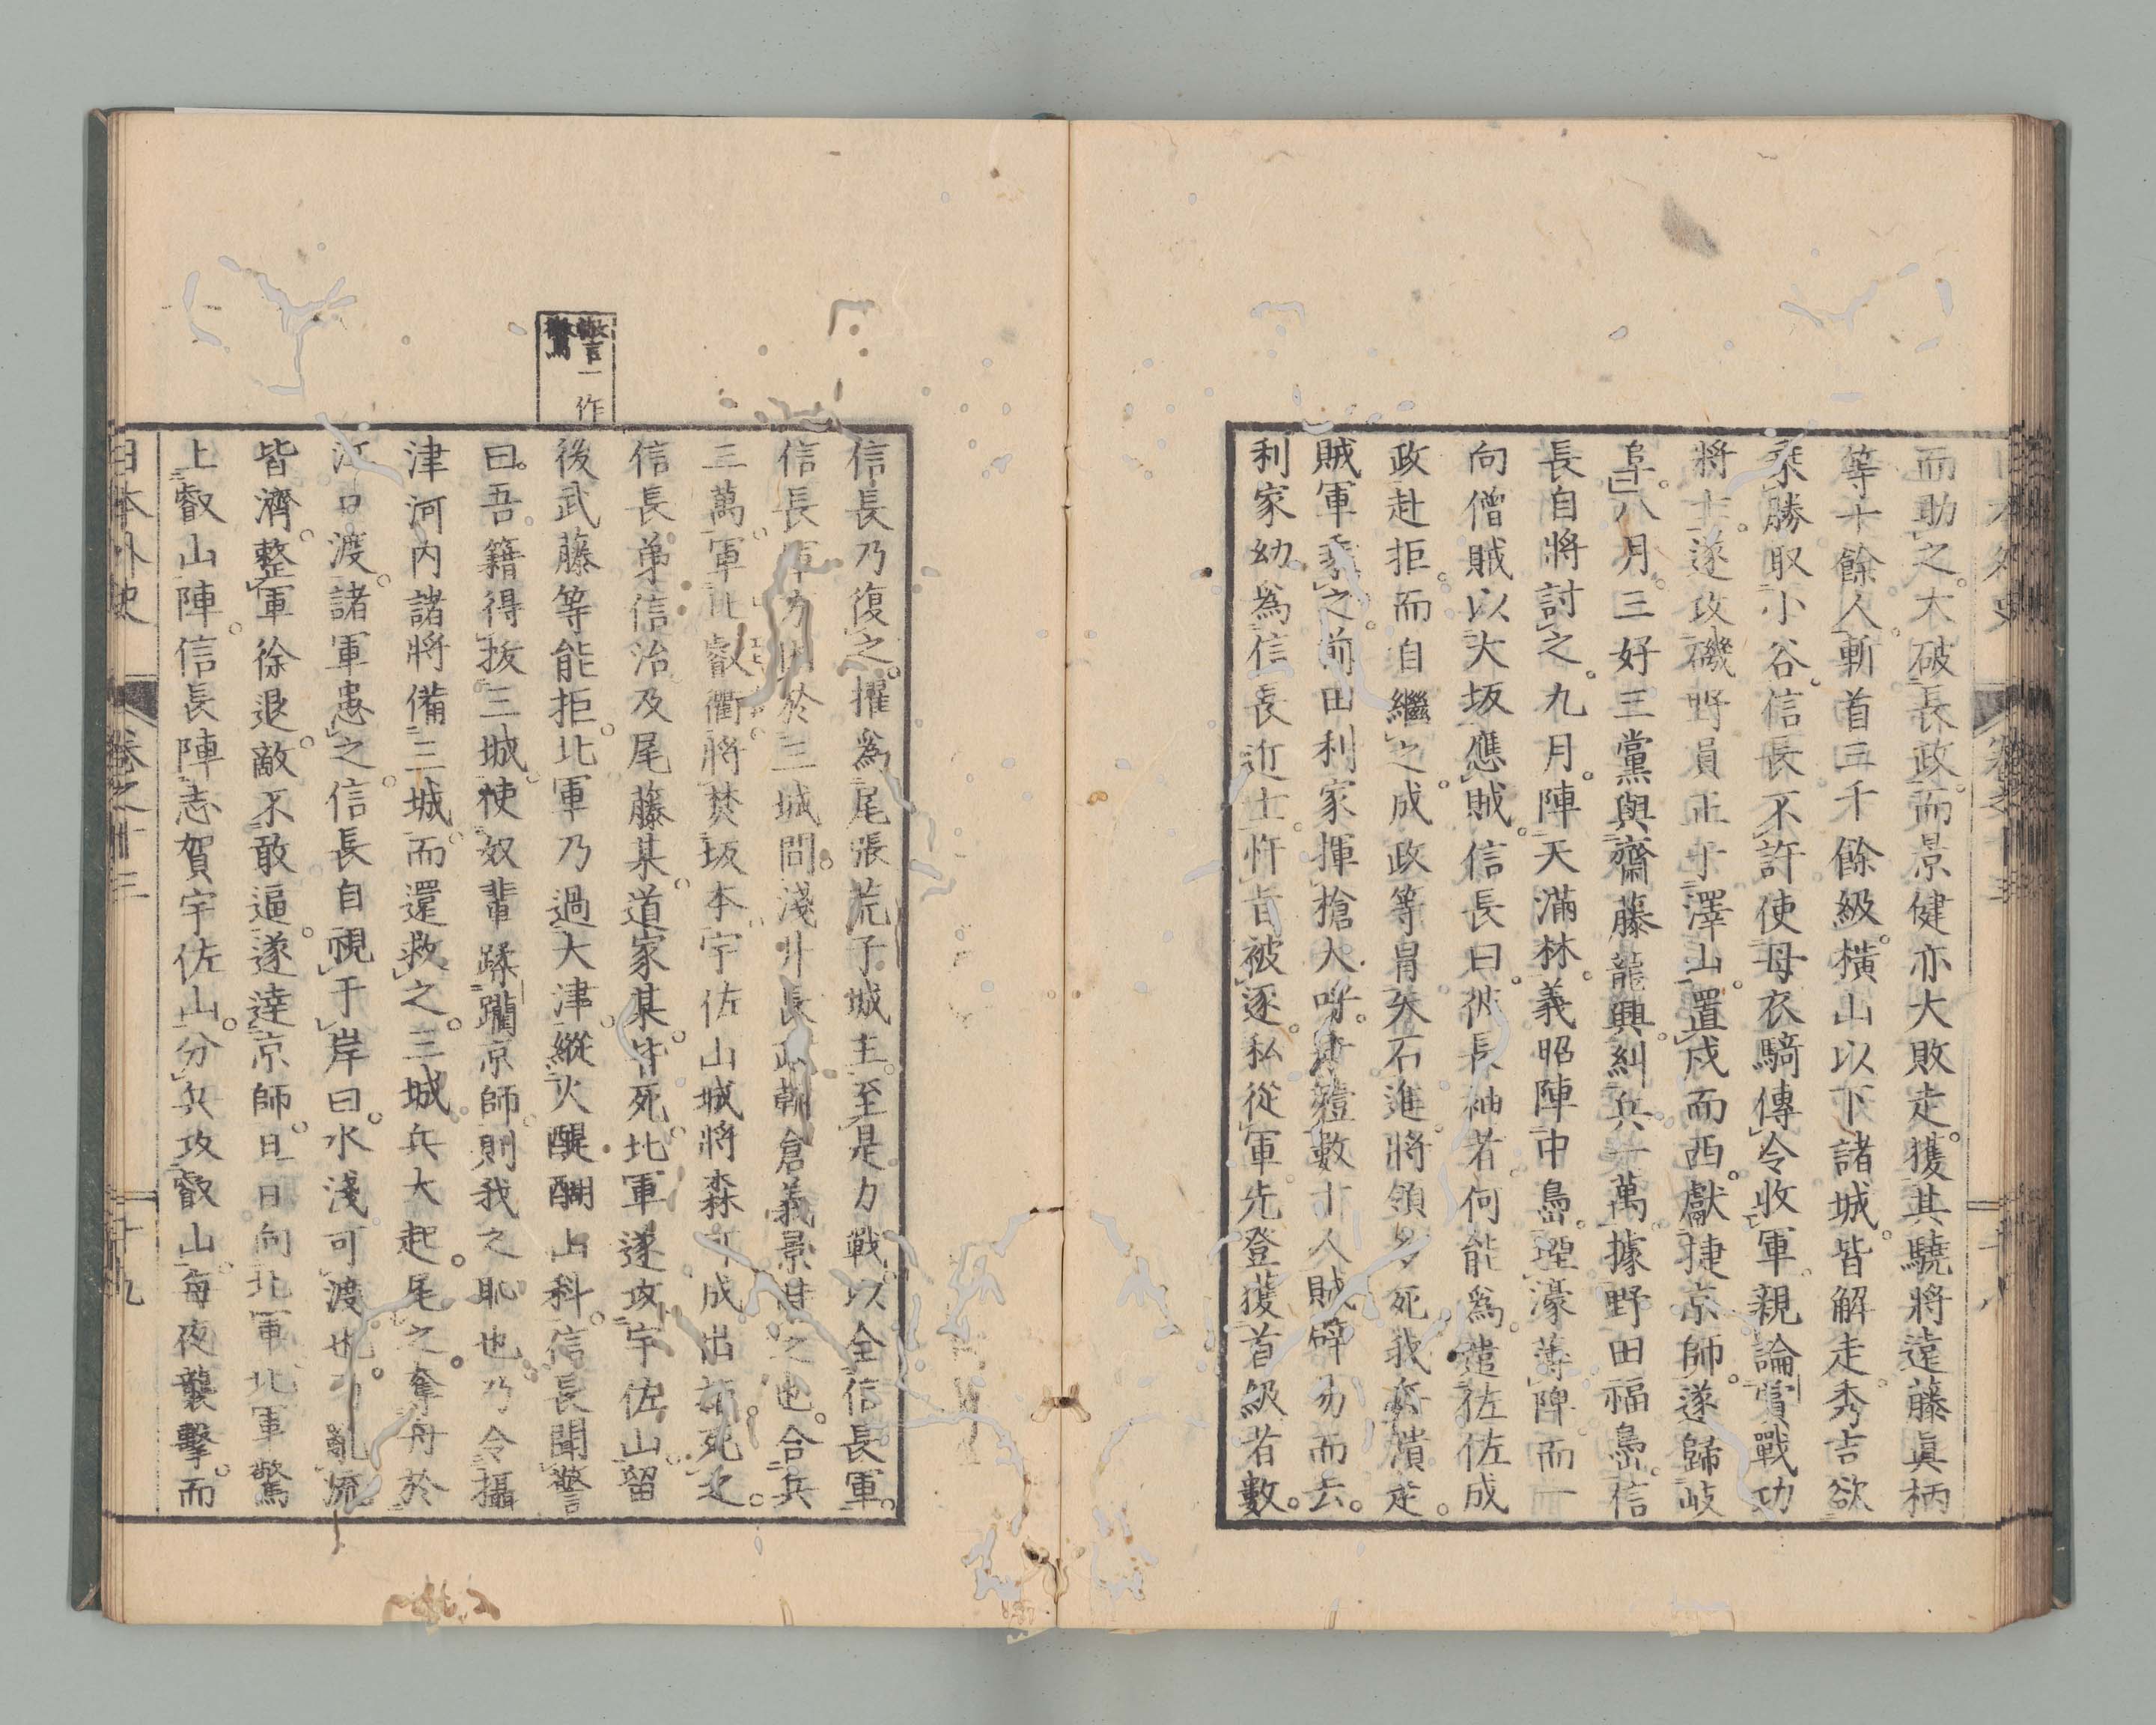 而助之。大破長政。而景健亦大敗走。獲其驍將遠藤眞柄
等十餘人。斬首三千餘級。橫山以下諸城。皆解走。秀吉欲
乘勝取小谷。信長不許。使母衣騎傳令收軍。親論賞戰功
將士。遂攻磯野員正于澤山。置戍而西。獻捷京師。遂歸岐
阜。八月。三好三黨與齋藤龍興。糾兵一萬。據野田福島。信
長自將討之。九月。陣天滿林。義昭陣中島。堙濠薄陴。而一
向僧賊以大坂應賊。信長曰。彼長袖者。何能爲。遣佐佐成
政赴拒。而自繼之。成政等冒矢石進。將領多死。我兵潰走。
賊軍乘之。前田利家揮槍大呼。
數十人。賊辟易而去。
利家幼爲信長近士。忤旨被逐。私從軍。先登獲首級若數。
信長乃復之。擢爲尾張荒子城主。至是力戰。以全信長軍。
信長軍方困於三城間。淺井長政朝倉義景
之也。合兵
三萬。軍比叡衢。將焚坂本。宇佐山城將森可成出拒死之。
信長弟信治及尾藤某。道家某。皆死。北軍遂攻宇佐山。留
後武藤等能拒。北軍乃過大津。縱火醍醐山科。信長聞警
曰。吾籍得拔三城。使奴輩蹂躪京師。則我之恥也。乃令攝
津河內諸將備三城。而還救之。三城兵大起。尾之。奪舟於
河口渡。諸軍患之。信長自覗于岸曰。水淺可渡也。乃亂流
皆濟。整軍徐退。敵不敢逼。遂達京師。旦日向北軍。北軍驚
上叡山陣。信長陣志賀宇佐山。分兵攻叡山。每夜襲擊。而
警一作
驚
日本外史 卷之十三 十九